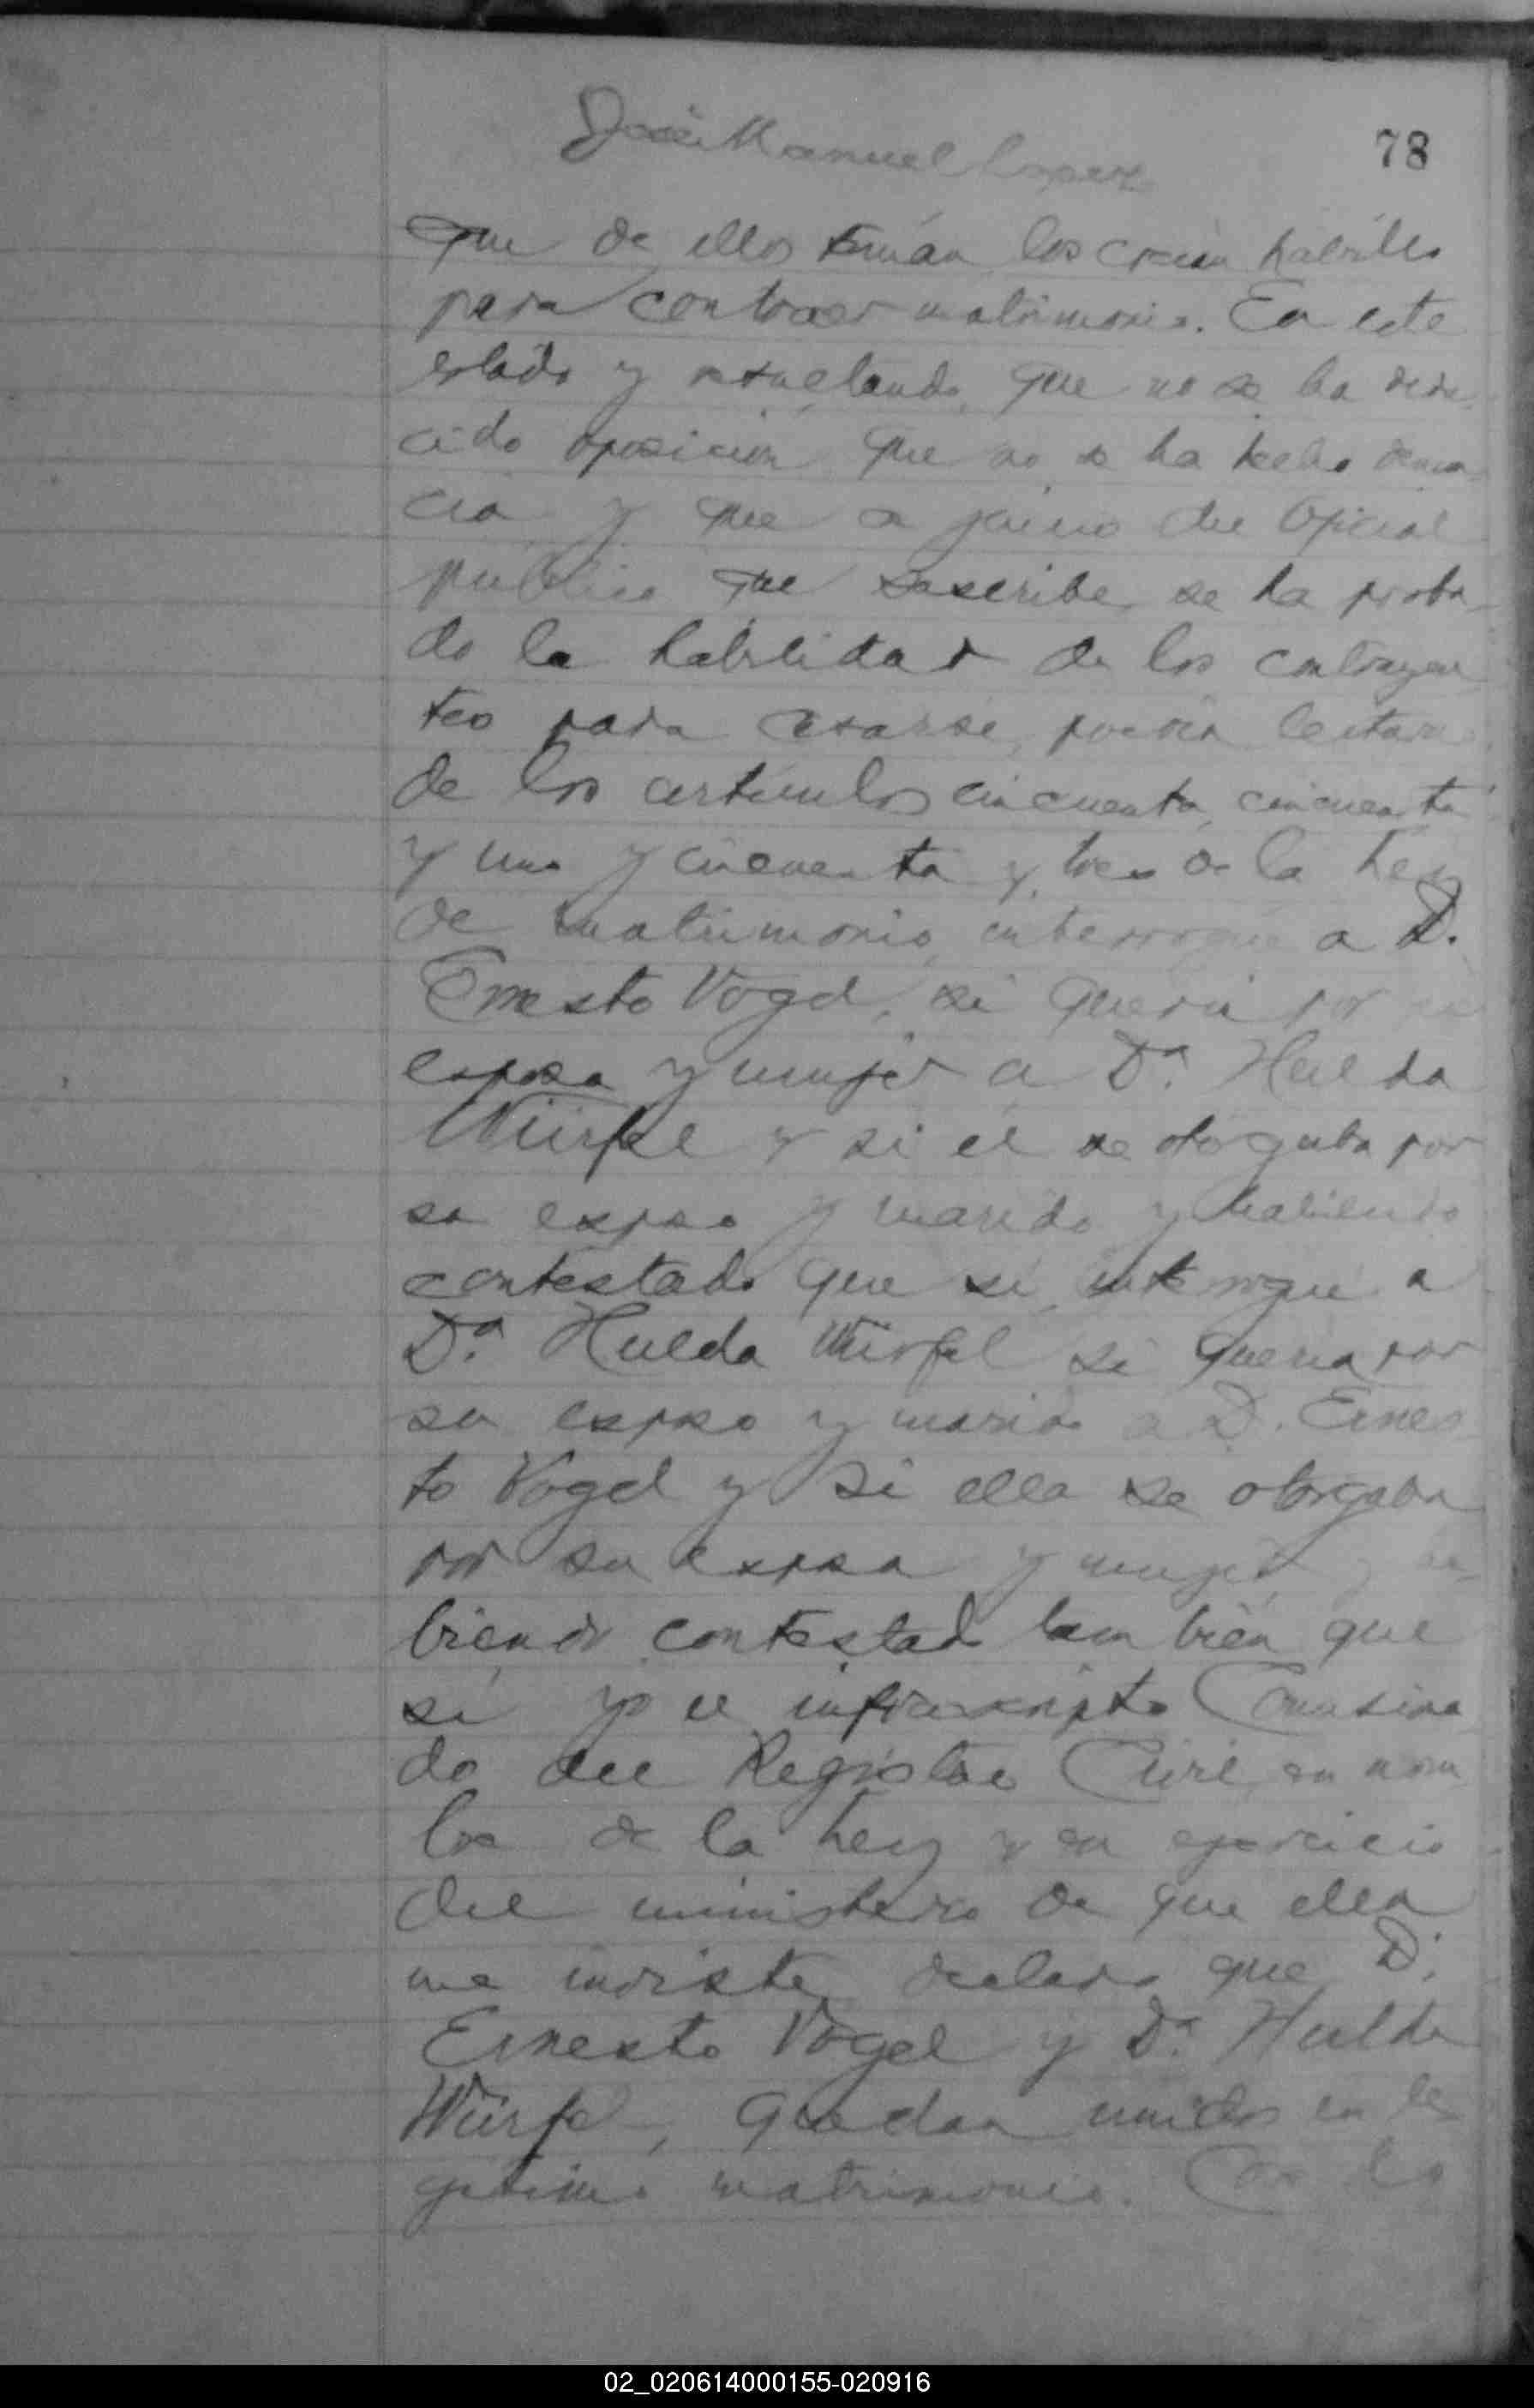 José Manuel Lopez
78
que de ellos tenían, los creían hábiles
para contraer matrimonio. En este
estado y resultando, que no se ha dedu-
cido oposición que no se ha hecho denun-
cia y que a juicio del Oficial
público que suscribe, se ha proba-
do la habilidad de los contrayen-
tes para casarse, previa lectura
de los artículos cincuenta, cincuenta
y uno y cincuenta y tres de la Ley
de matrimonio, interrogué a D.
Ernesto Vogel, si quería por su
esposa y mujer a Dª. Hulda
Würfel y si él se otorgaba por
su esposo y marido y habiendo
contestado que sí, interrogué a
Dª. Hulda Würfel si quería por
su esposo y marido a D. Ernes-
to Vogel y si ella se otorgaba
por su esposa y mujer y ha-
biendo contestado también que
sí yo el infrascripto
do del Registro Civil, en nom
bre de la Ley y en ejercicio
del ministerio de que ella
me inviste, declaro que D.
Ernesto Vogel y Dª. Hulda
Würfel, quedan unidos en le
gítimo matrimonio. Con lo
02_020614000155-020916